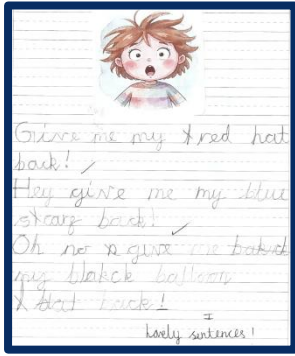 Give me my red hat
back!
Hey give me my blue
scarg back!
Oh no give me
my blakck balloon
back!
I
lovely sentences!